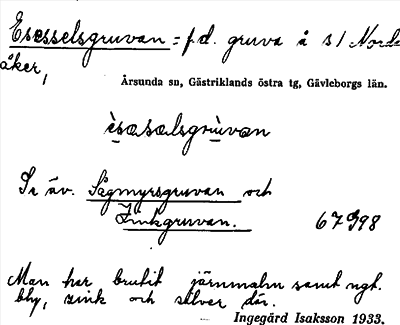 Esesselsgruvan = f.d. gruva å s/ Nords
åker,
Årsunda sn, Gästriklands östra tg, Gävleborgs län.
ìsəsəlsgrùvan
Se äv. Sågmyrsgruvan och
Zinkgruvan. 67998
Man har brutit järnmalm samt ngt.
bly, zink och silver där.
Ingegärd Isaksson 1933.